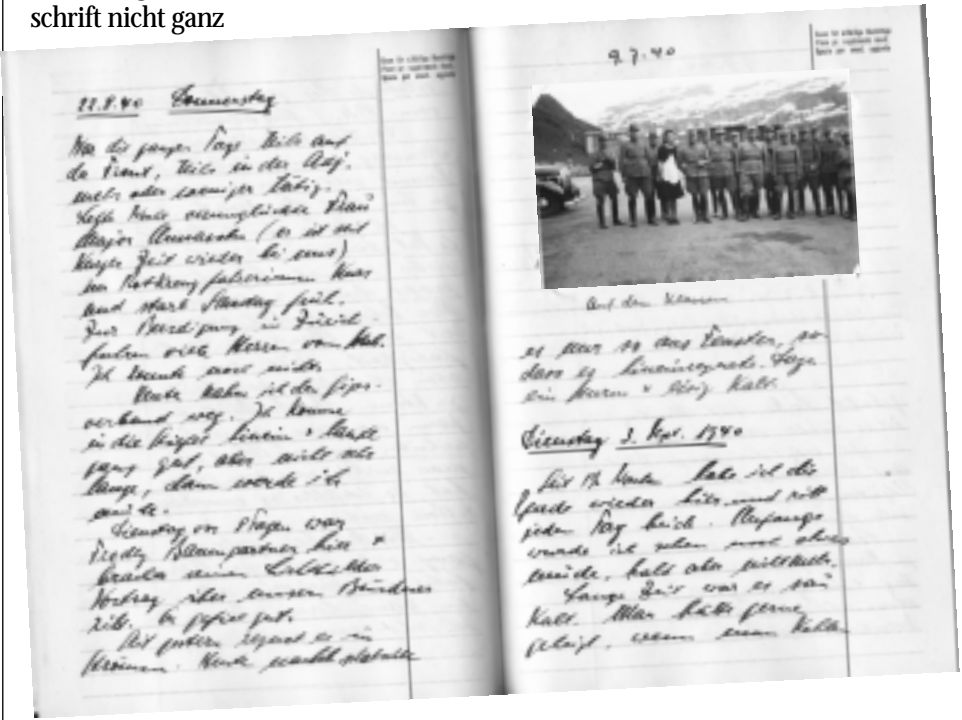 schrift nicht ganz
22.8.40 Donnerstag
War die ganzen Tage teils auf
der Front, teils in der Adj.
mehr oder weniger tätig.
Letzte Woche verunglückte Frau
Major (er ist seit
kurzer Zeit wieder bei uns)
im Rotkreuz fahrerinnen Kurs
und starb Sonntag früh.
Zur Beerdigung in Zürich
fuhren viele Herren vom Stab.
Ich konnte noch nicht.
Heute nahm ich den Gips-
verband weg. Ich komme
in die Bügel hinein &
ganz gut, aber nicht sehr
lange, dann werde ich
müde.
Dienstag vor 8 Tagen war
Fredy Baumgartner hier &
brachte einen Lichtbilder
Vortrag über unseren Bündner
ritt. Er gefiel gut.
Seit gestern regnet es in
Strömen. Heute nachts
9.7.40
Auf dem Klausen
es nur so ans Fenster, so
dass es hineinregnete. Tage
ein Sturm & eisig kalt.
Dienstag 3. Sept. 1940
Seit 1½ Wochen habe ich die
Pferde wieder hier und ritt
jeden Tag. Anfangs
wurde ich schon noch etwas
müde, bald aber nicht mehr.
Lange Zeit war es sau
kalt. Man hätte gerne
geheizt, wenn man Kohlen